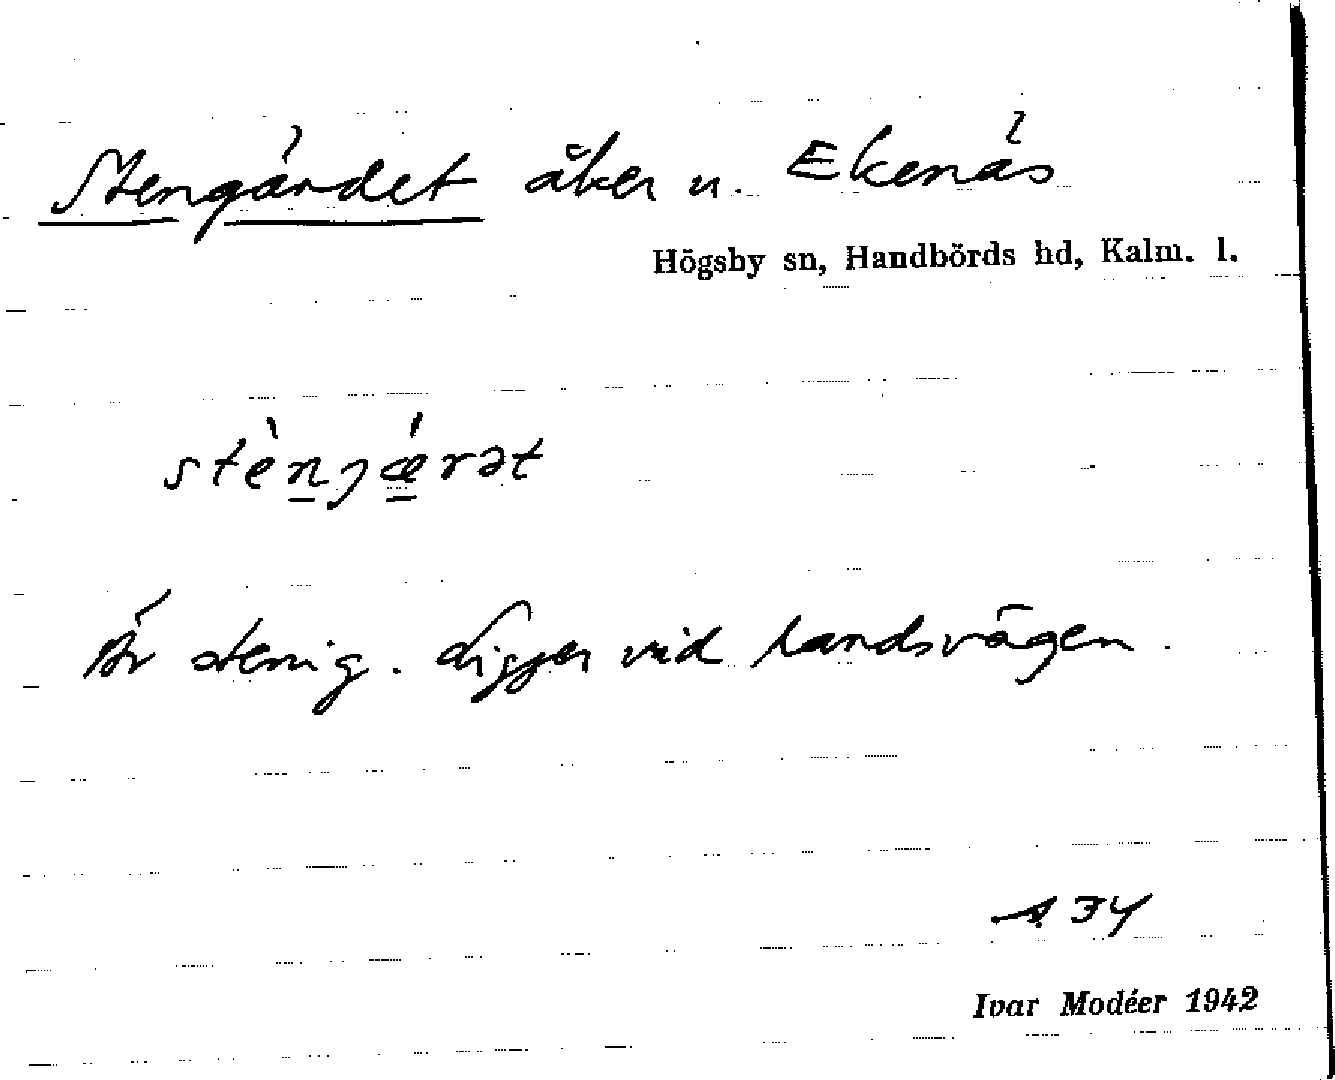 Stengärdet åker u. Ekenäs
Högsby sn, Handbörds hd, Kalm. l.
stènjǽrət
Är stenig. Ligger vid landsvägen.
A 34
Ivar Modéer 1942